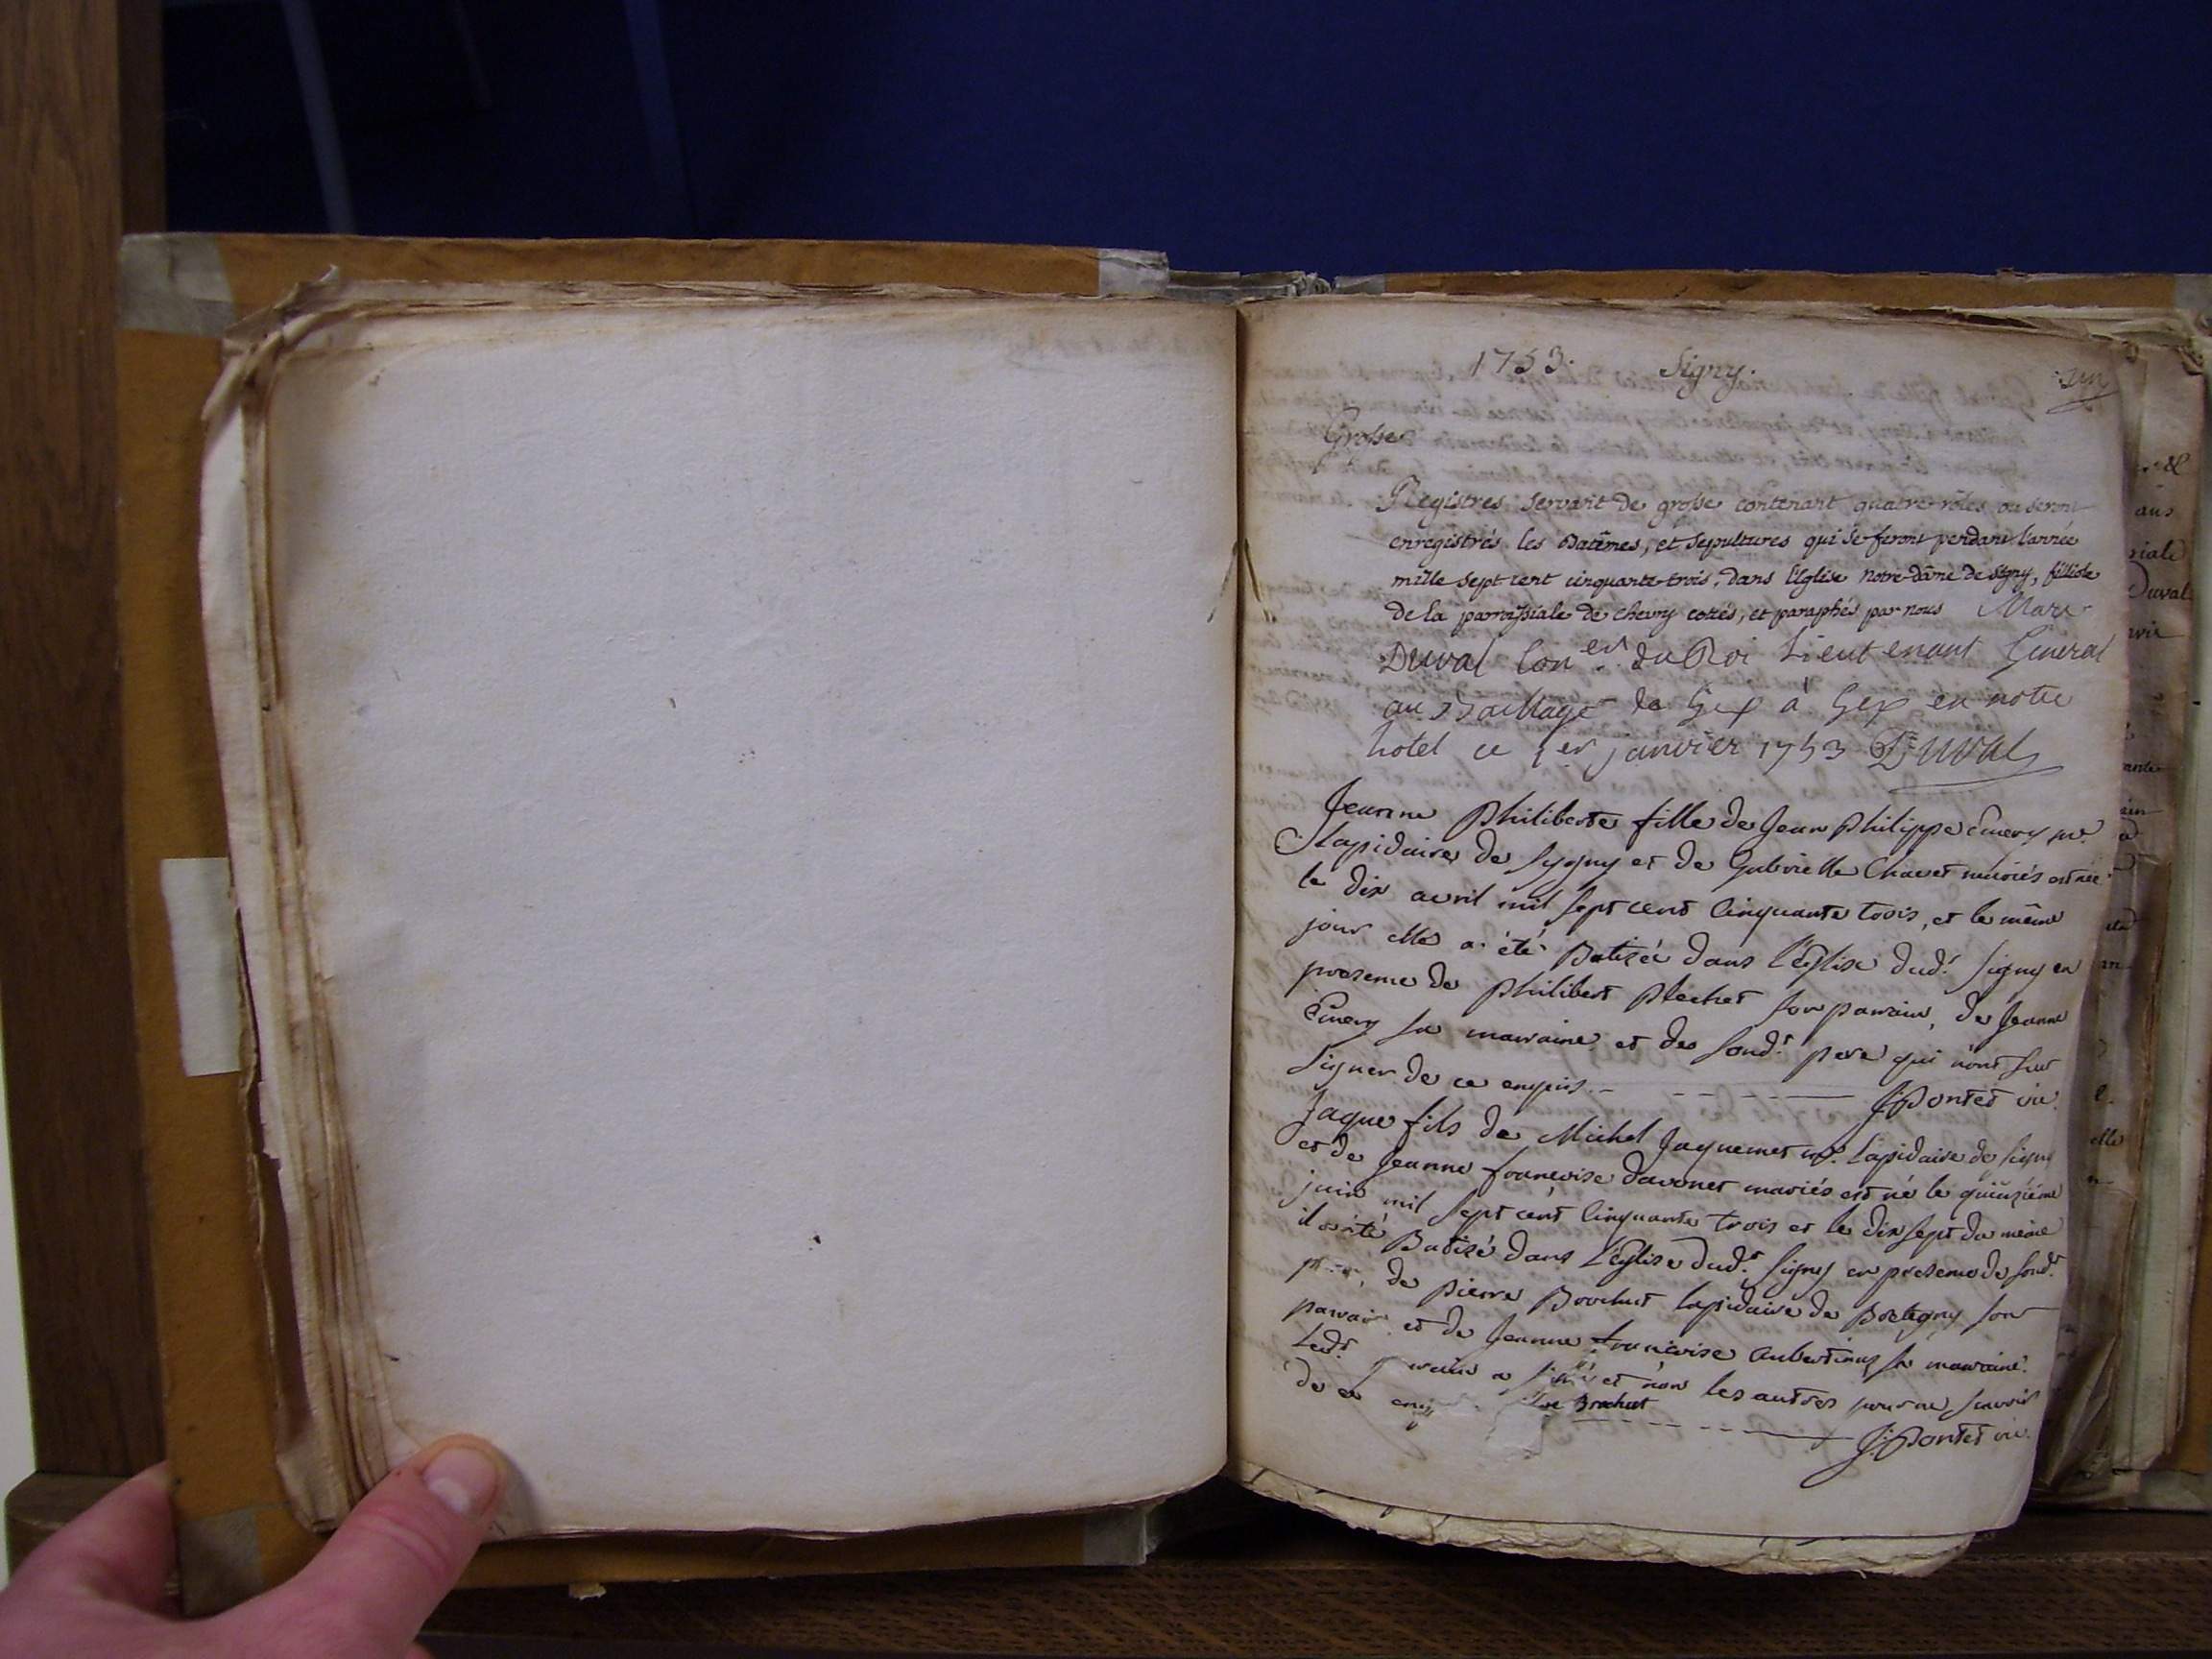 1753. Signy. un
Grosse
Registres servant de grosse contenant quatre rôles ou seront
enregistrés les Batêmes, et sepultures qui se feront pendant l'année
mille sept cent cinquante trois, dans l'Eglise notre dâme de Signy, filliole
de la paroissiale de chevry cottés, et paraphés par nous Marc
Duval Con.er du Roi Lieutenant General
au Bailliage de Gex à Gex en notre
hotel ce 1er janvier 1753 Duval
Jeanne Philiberte fille de Jean Philippe Emery m.e
lapidaire de Sygny et de Gabrielle Chavet mariés est née
le dix avril mil sept cent cinquante trois, et le même
jour elle a été Batisée dans l'église dud.t Signy en
presence de Philibert Plechet son parrain, de Jeanne
Emery sa marraine et de sond.t pere qui n'ont sut
signer de ce enquis. J: Pontet vic.
Jaque fils de Michel Jaquemet m.e lapidaire de signy
et de Jeanne francoise Davonet mariés est né le quinzième
juin mil sept cent cinquante trois et le dix sept du même
il a été Batisé dans l'église dud.t Signy en presence de sond.t
de Pierre Brochut lapidaire de Bretegny son
parrain et de Jeanne francoise sa marraine.
Led.t a et non les autres pour ne scavoir
de ce Brochut
J: Pontet vic.